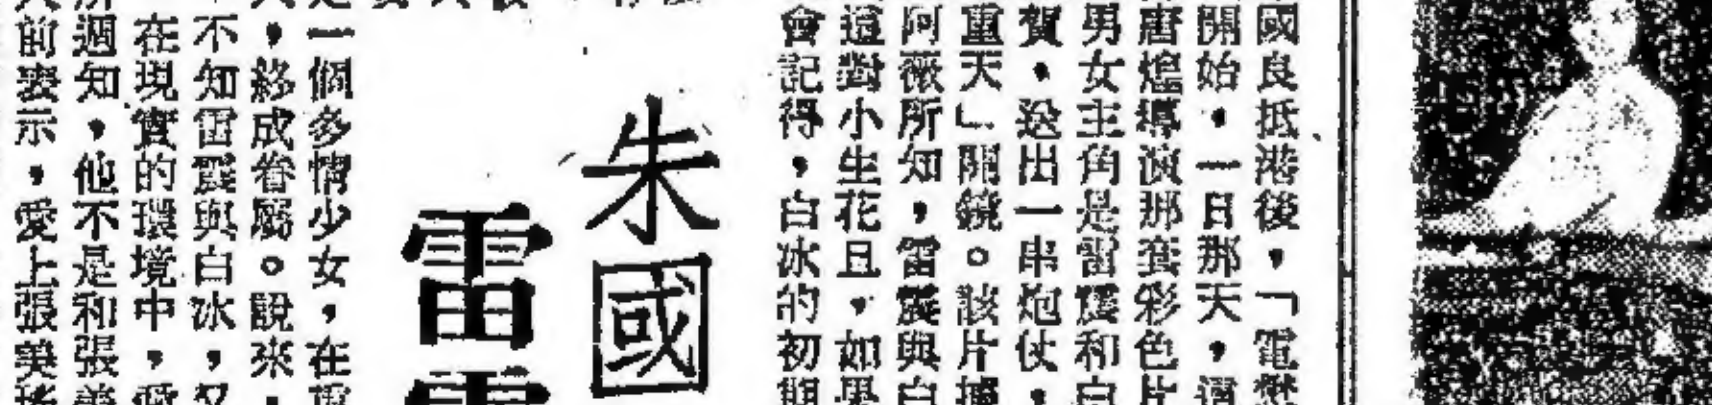 國良抵港後，「電
開始，一日那天，這
唐煌導演那套彩色片
男女主角是雷震和白
賀，送出一串炮仗，
重天」開鏡。該片據
阿薇所知，雷震與白
這對小生花旦，如果
會記得，白冰的初期
朱國
雷震
一個多情少女，在
，終成眷屬。說來，
不知雷震與白冰，又
在現實的環境中，愛
週知，他不是和張美
前表示，愛上張美瑤